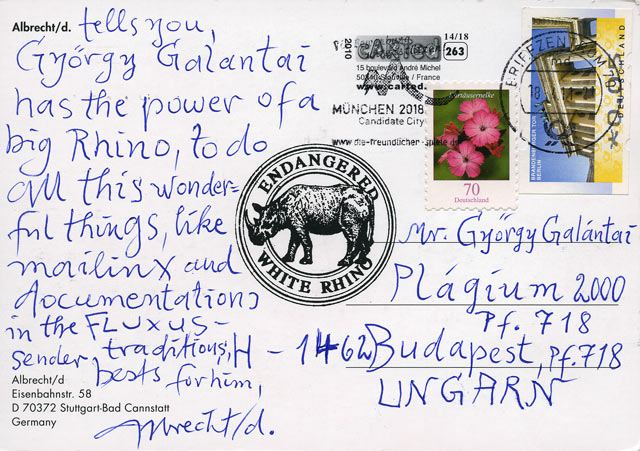 Albrecht/d. tells you,
György Galantai
has the power of a
big Rhino, to do
all this wonder=
ful things, like
mailinx and
documentations
in the FLUXUS-
sender traditions,
bests for him,
Albrecht/d.
Albrecht/d
Eisenbahnstr. 58
D 70372 Stuttgart-Bad Cannstatt
Germany
ENDANGERED
WHITE RHINO
2010
CARTED
14/18
263
15 boulevard André Michel
/ France
www.carted.
MÜNCHEN 2018
Candidate City
www.die-freundlichen-spiele.de
BRIEFZENTRUM
18
Kartäusernelke
70
Deutschland
BRANDENBURGER TOR
BERLIN
DEUTSCHLAND
Mr. György Galántai
Plágium 2000
Pf. 718
H - 1462 Budapest, Pf. 718
UNGARN